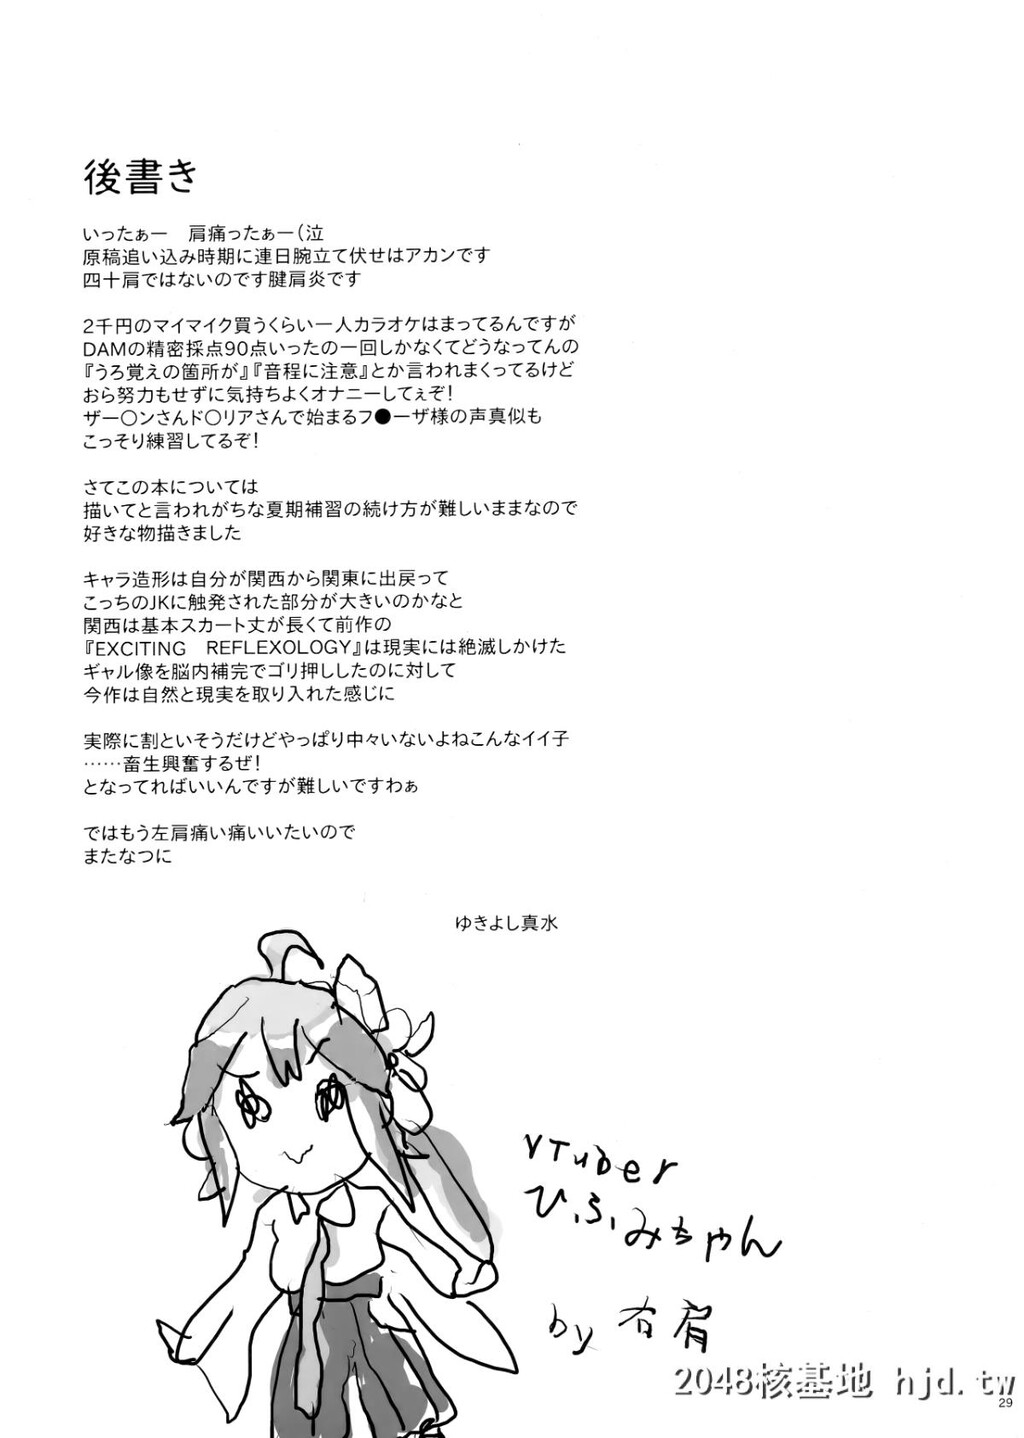 後書き
いったぁー　肩痛ったぁー（泣
原稿追い込み時期に連日腕立て伏せはアカンです
四十肩ではないのです腱肩炎です
2千円のマイマイク買うくらい一人カラオケはまってるんですが
DAMの精密採点90点いったの一回しかなくてどうなってんの
『うろ覚えの箇所が』『音程に注意』とか言われまくってるけど
おら努力もせずに気持ちよくオナニーしてぇぞ！
ザー〇ンさんド〇リアさんで始まるフ●ーザ様の声真似も
こっそり練習してるぞ！
さてこの本については
描いてと言われがちな夏期補習の続け方が難しいままなので
好きな物描きました
キャラ造形は自分が関西から関東に出戻って
こっちのJKに触発された部分が大きいのかなと
関西は基本スカート丈が長くて前作の
『EXCITING　REFLEXOLOGY』は現実には絶滅しかけた
ギャル像を脳内補完でゴリ押ししたのに対して
今作は自然と現実を取り入れた感じに
実際に割といそうだけどやっぱり中々いないよねこんなイイ子
……畜生興奮するぜ！
となってればいいんですが難しいですわぁ
ではもう左肩痛い痛いいたいので
またなつに
ゆきよし真水
VTuber
ひふみちゃん
by 右肩
2048核基地 hjd.tw
29